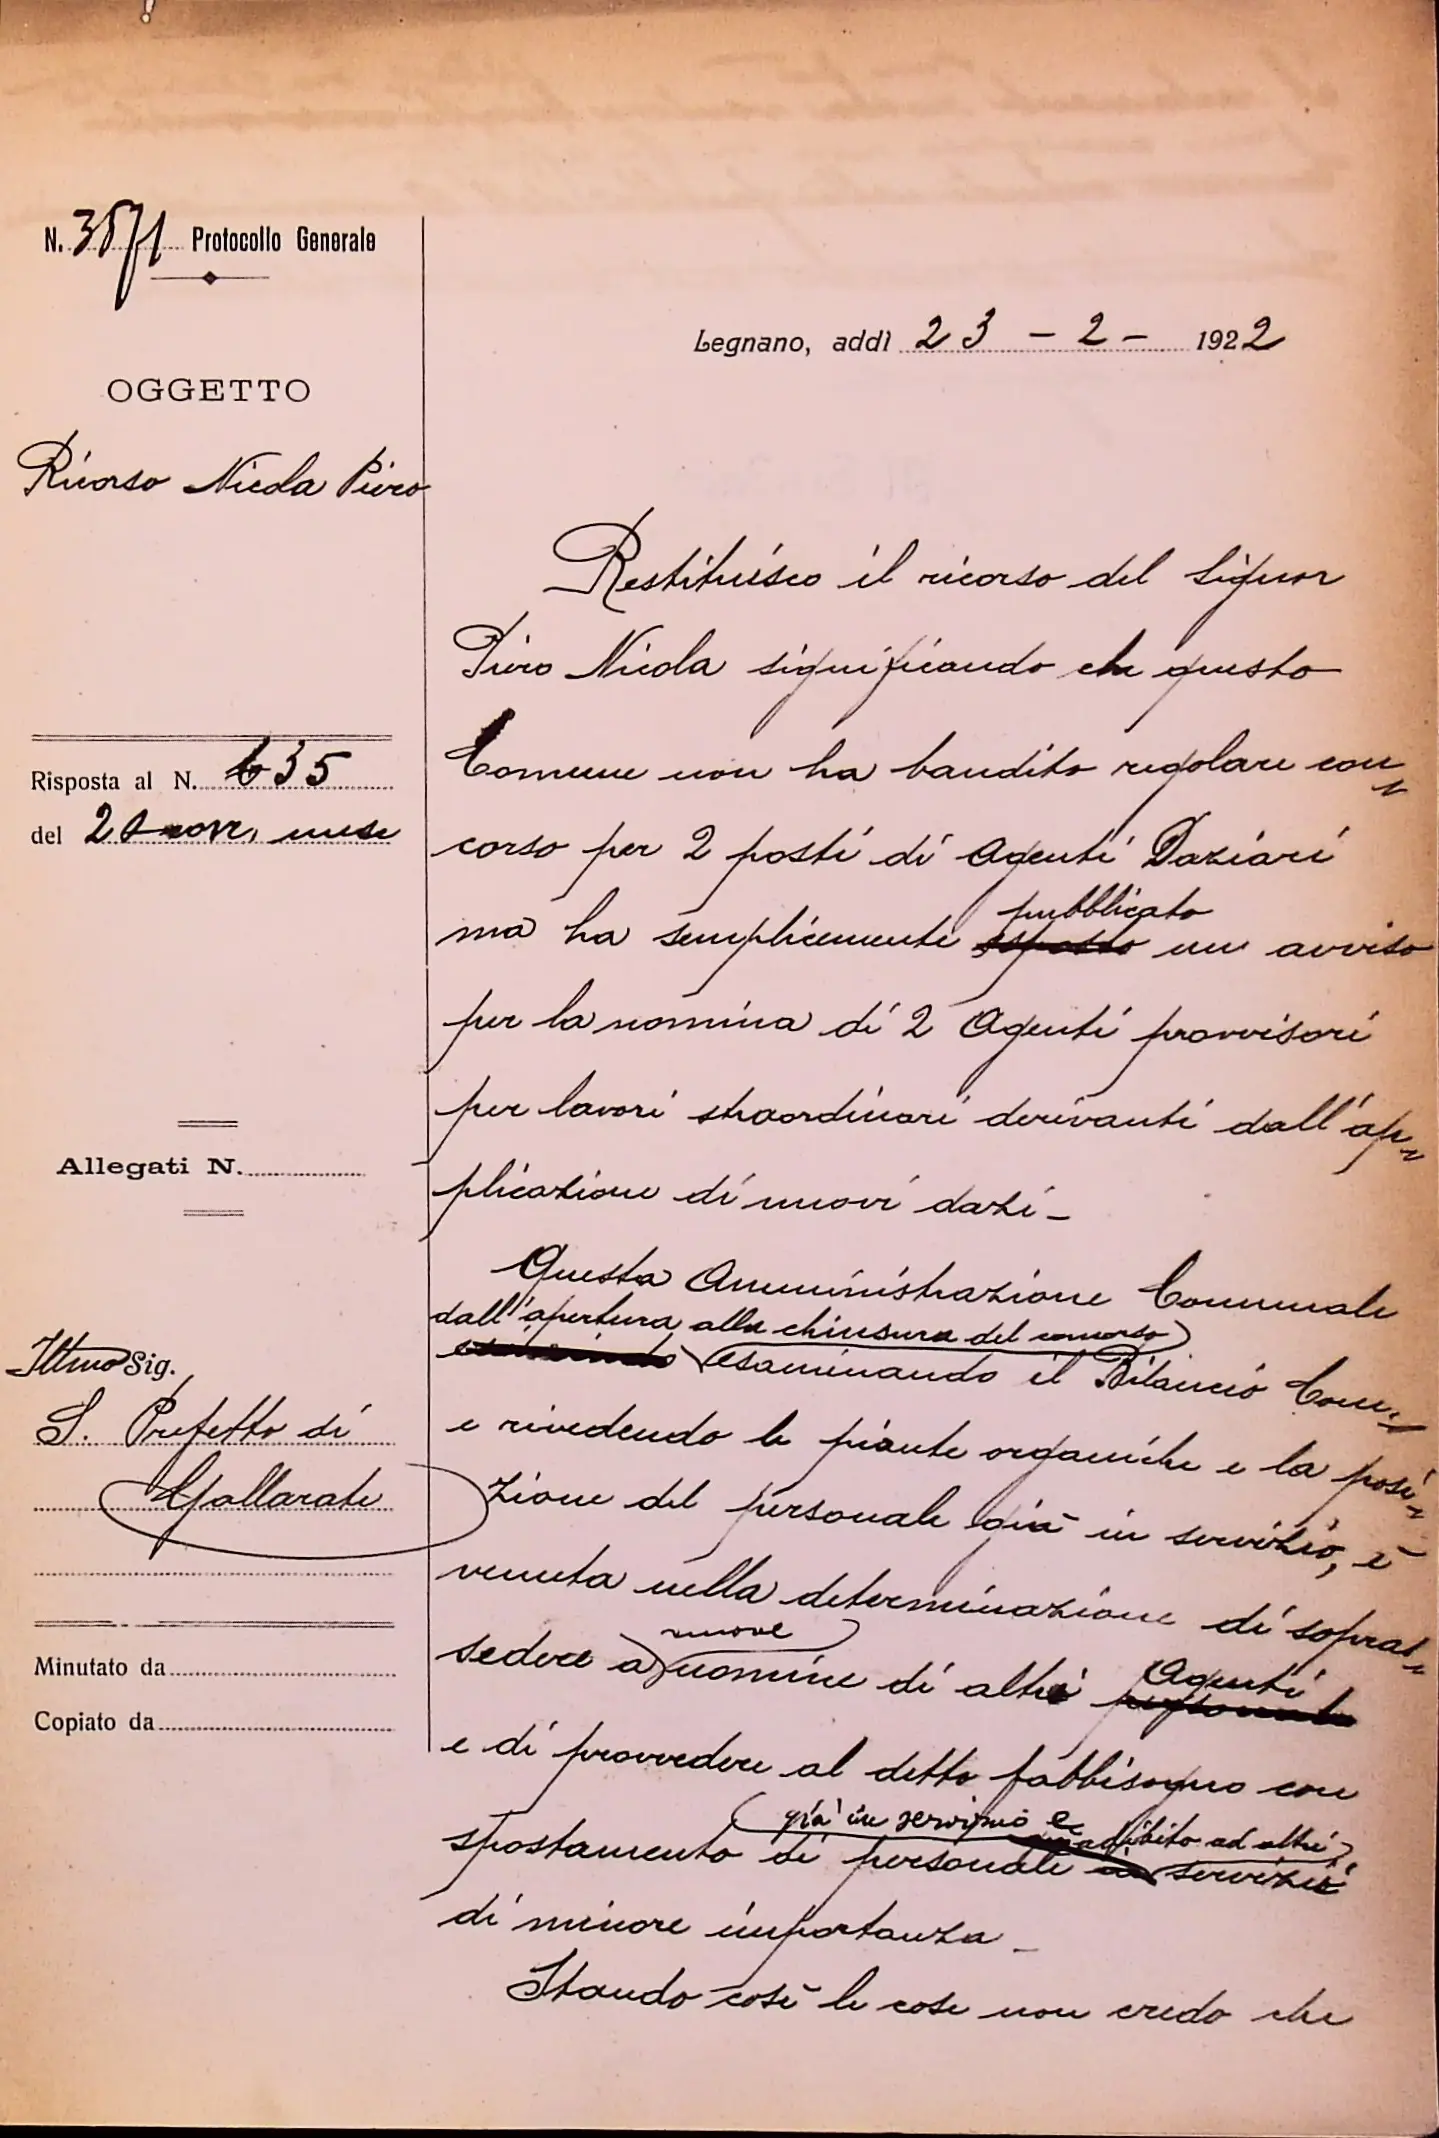 N. 3571 Protocollo Generale
Legnano, addì 23 - 2 - 1922
OGGETTO
Ricorso Nicola Piero
Risposta al N. 635
del corr. mese
Allegati N.
Illmo Sig.
S. Prefetto di
Gallarate
Minutato da
Copiato da
Restituisco il ricorso del Signor
Piero Nicola significando che questo
Comune non ha bandito regolare con-
corso per 2 posti di Agenti Daziari
pubblicato
ma ha semplicemente esposto un avviso
per la nomina di 2 Agenti provvisori
per lavori straordinari derivanti dall'ap-
plicazione di nuovi dazi -
Questa Amministrazione Comunale
dall'apertura alla chiusura del concorso
esaminando il Bilancio Com.
e rivedendo le piante organiche e la posi-
zione del personale già in servizio, è
venuta nella determinazione di sopras-
nuove
sedere a nomine di altri Agenti
e di provvedere al detto fabbisogno con
già in servizio e adibito ad altri
spostamento di personale in servizi
di minore importanza -
Stando così le cose non credo che